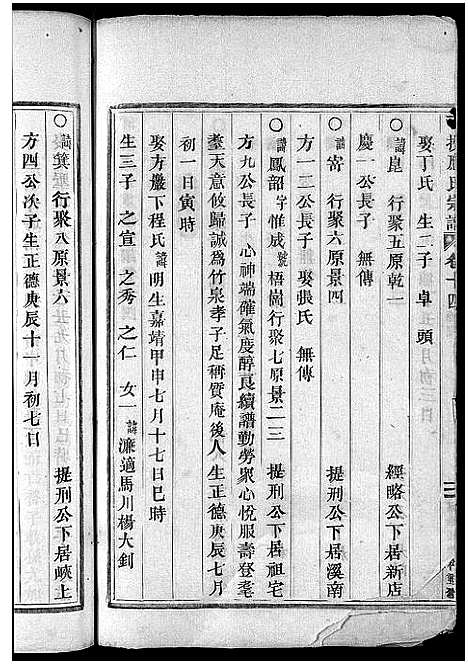 氏宗譜 卷十四
娶丁氏 生二子 卓 頭
○諱崑 行聚五原乾一 經略公下居新店
慶一公長子 無傳
○諱寄 行聚六原景四 提刑公下居溪南
方一二公長子 娶張氏 無傳
○諱鳳韶 字惟成 號梧崗行聚七原景二三 提刑公下居祖宅
方九公長子 心神端確氣度醇良續譜勤勞眾心悅服壽登耄
耋天意攸歸誠為竹泉孝子足稱質庵後人 生正德庚辰七月
初一日寅時
娶方巖下程氏諱明生嘉靖甲申七月十七日巳時
生三子 之宣 之秀 之仁 女一諱濂適馬川楊大釗
○諱 行聚八原景六 提刑公下居峽上
方四公次子生正德庚辰十一月初七日